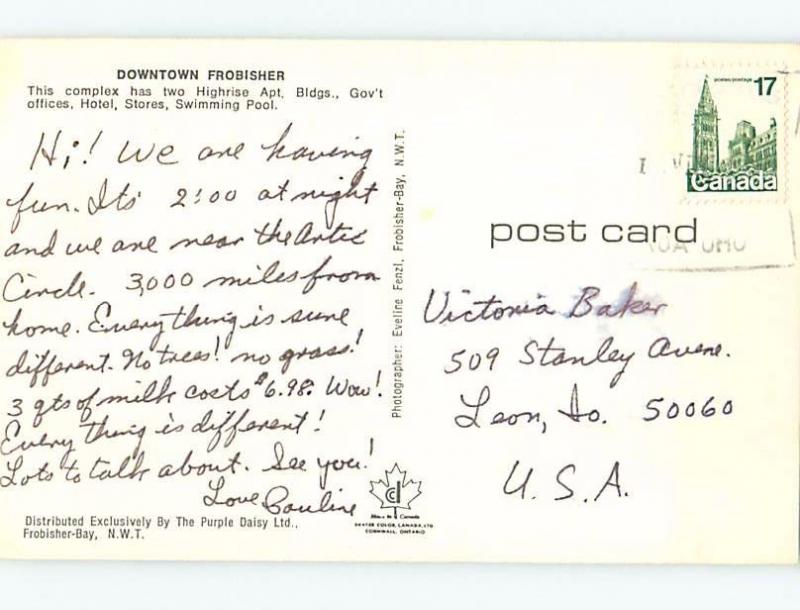 DOWNTOWN FROBISHER
This complex has two Highrise Apt. Bldgs., Gov't
offices, Hotel, Stores, Swimming Pool.
Hi! We are having
fun. Its 2:00 at night
and we are near the Artic
Circle. 3,000 miles from
home. Everything is sure
different. No trees! no grass!
3 qts of milk costs $6.98. Wow!
Every thing is different!
Lots to talk about. See you!
Love Pauline
Distributed Exclusively By The Purple Daisy Ltd.,
Frobisher-Bay, N.W.T.
Photographer: Eveline Fenzl, Frobisher-Bay, N.W.T.
Made in Canada
DEXTER COLOR, CANADA, LTD
CORNWALL, ONTARIO
postes/postage 17
Canada
post card
Victoria Baker
509 Stanley Avene.
Leon, Io. 50060
U.S.A.